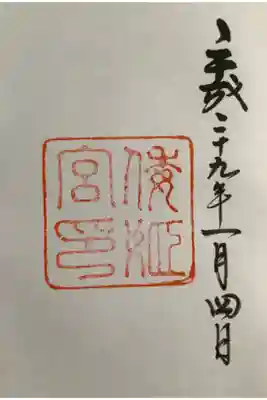 平成二十九年一月四日
倭姫
宮印